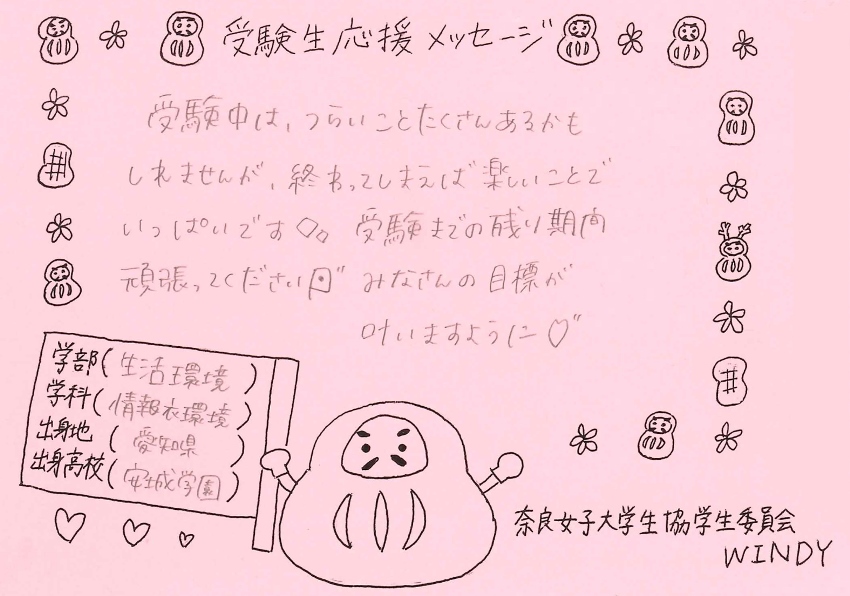 受験生応援メッセージ
受験中は、つらいことたくさんあるかも
しれませんが、終わってしまえば楽しいことで
いっぱいです 受験までの残り期間
頑張ってください みなさんの目標が
叶いますように♡
学部(生活環境)
学科(情報衣環境)
出身地(愛知県)
出身高校(安城学園)
奈良女子大学生協学生委員会
WINDY